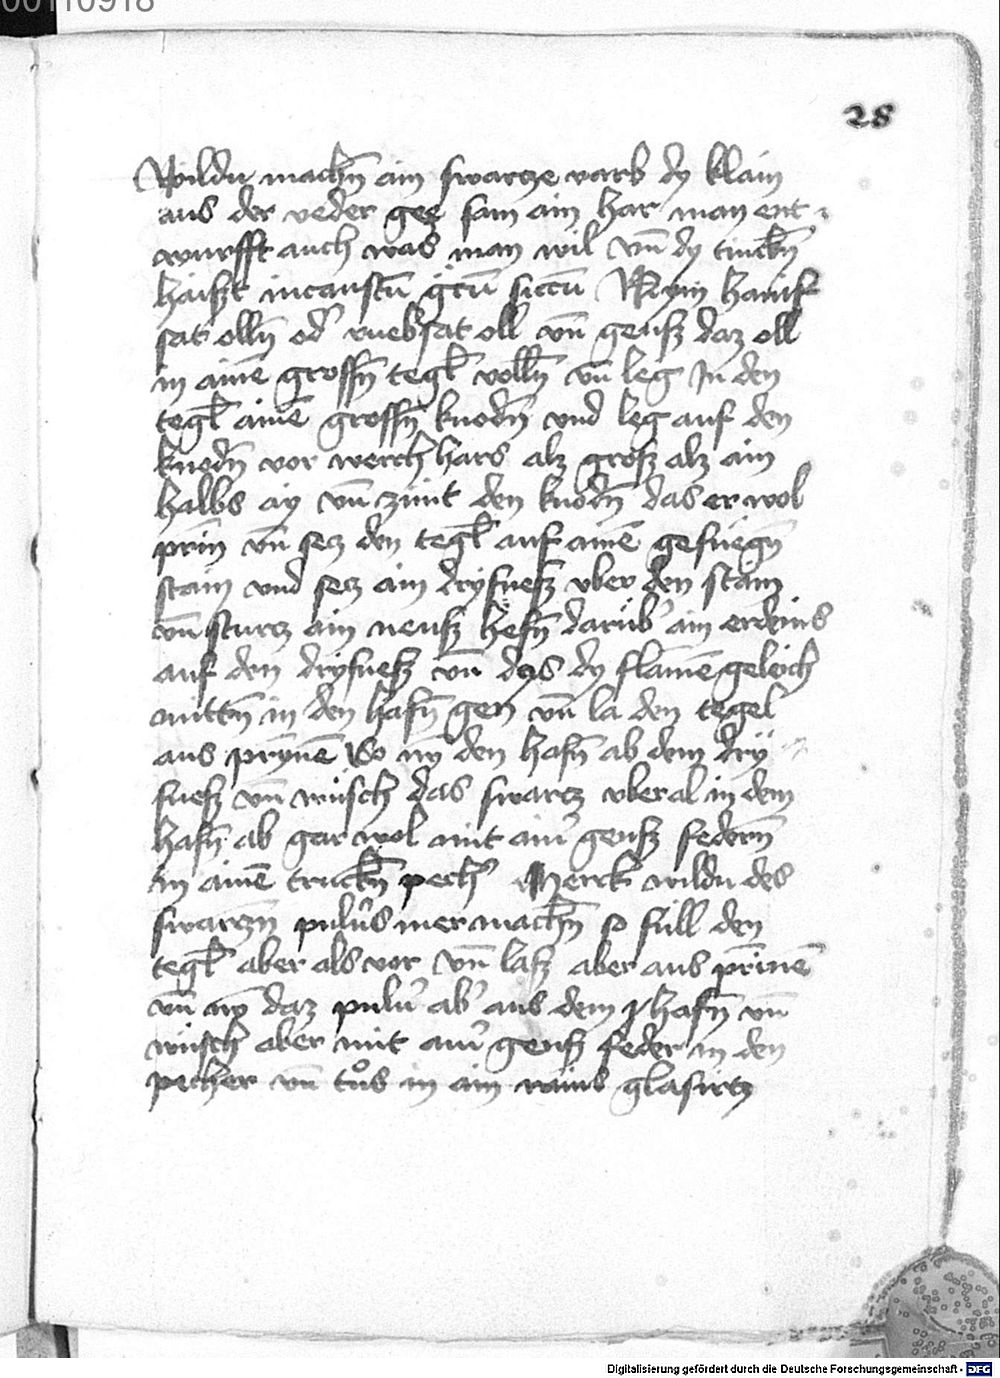 00110918
28
Wildu mach̄n ain swartze varb dy klain
aus der veder gee sam ain har man ent
wurfft auch was man wil vn̄ dy tinck̄n
haiszt incaustū gͤtū siccū Nym hanif
sat olln̄ od' ruebsat oll vn̄ geusz daz oll
in ainē grossn̄ tegl̄ volln̄ vn̄ leg In den
tegl̄ ainē grossn̄ knodn̄ und leg auf den
knodn̄ vor werch hars alz grosz alz ain
halbs ay vn̄ zünt den knodn̄ das er wol
prīn vn̄ secz den tegl̄ auf ainē gefuegn̄
stain und secz ain dryfuesz vber den stain
vn̄ sturcz ain neusz hefn̄ darüb' ain erdeins
auf den dryfuesz vn̄ das dy flamē geleich
mittn̄ in den hafn̄ gen vn̄ la den tegel
aus prynnē So ny den hafn̄ ab dem dry
fuesz vn̄ wüsch das swartz vberal in dem
hafn̄ ab gar wol mit ain' geusz federn̄
in ainē truckn̄ pech' Merck wildu des
swarczn̄ pulu's mer mach̄n so füll den
tegl̄ aber als vor vn̄ lasz aber aus prīnnē
vn̄ ny daz pulu' ab' aus dem hafn̄ vn̄
wüsch aber mit ain' geusz feder in den
pecher vn̄ tůs in ain rains glasirtz
Digitalisierung gefördert durch die Deutsche Forschungsgemeinschaft - DFG